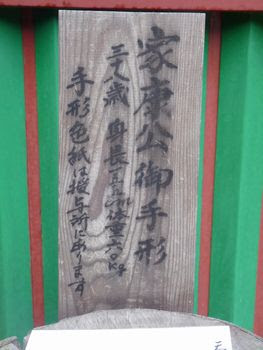 家康公御手形
三十八歳 身長一五五cm体重六〇kg
手形色紙は授与所にあります